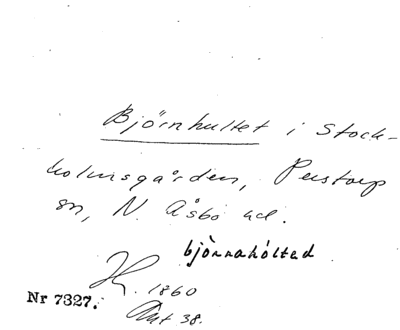 Björnhultet i Stock-
holmsgården, Perstorp
sn, N. Åsbo hd.
björnahóltad
1860
Nr 7327.
Ant 38.